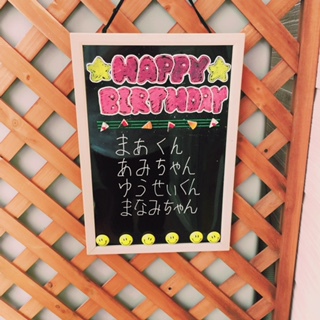 HAPPY
BIRTHDAY
まぁくん
あみちゃん
ゆうせいくん
まなみちゃん